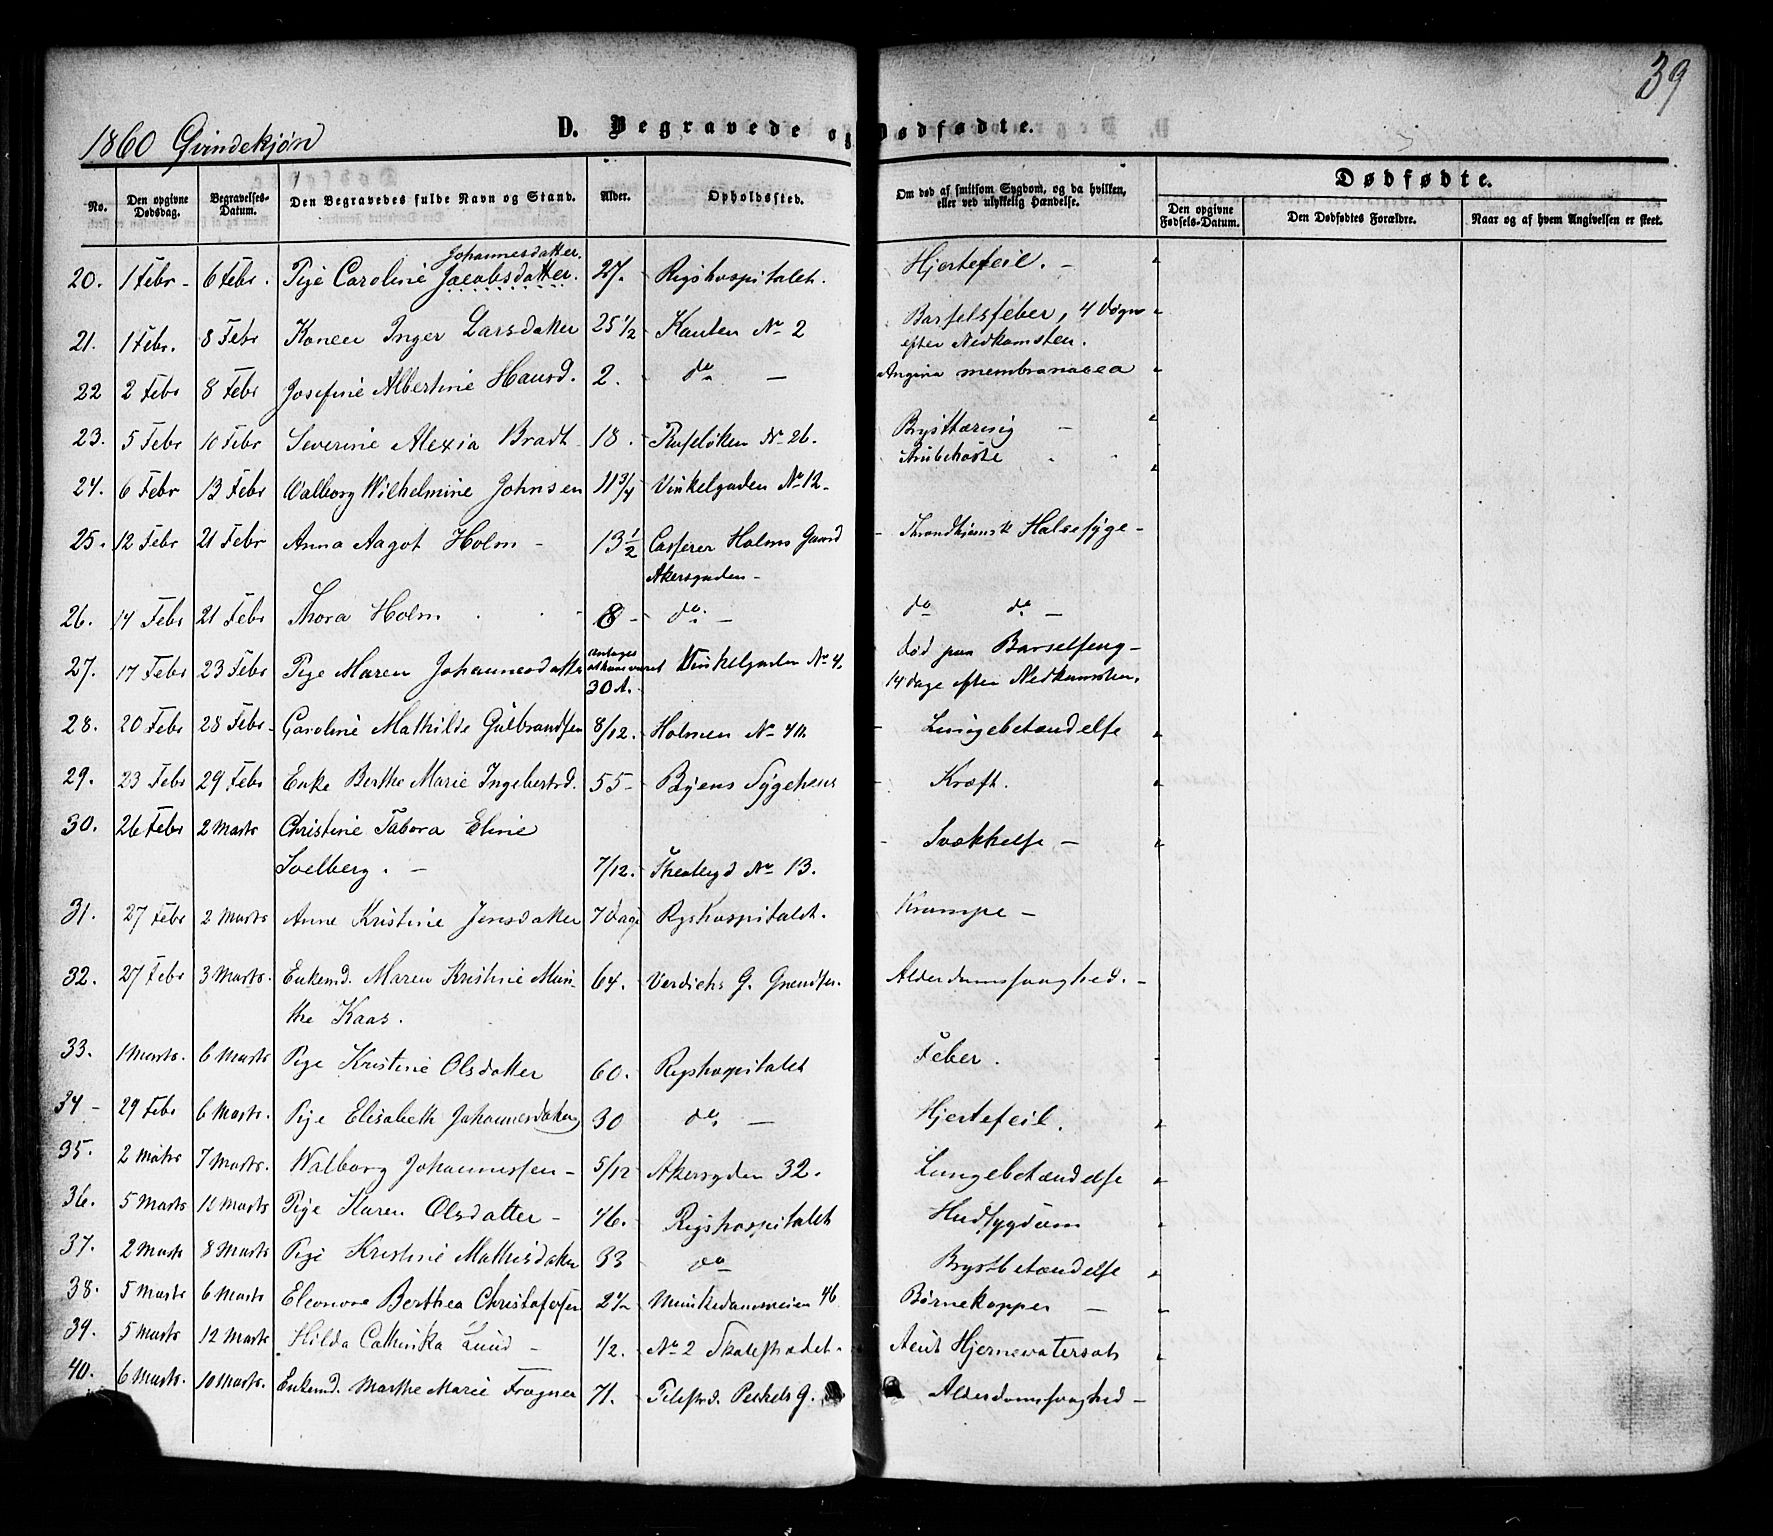 39
1860 Qvindekjøn
D. Begravede og Dødfødte.
No. Den opgivne Dødsdag. Begravelses-Datum. Den Begravedes fulde Navn og Stand. Alder. Opholdssted. Om død af smitsom Sygdom, og da hvilken, eller ved ulykkelig Hændelse. Dødfødte.
Den opgivne Fødsels-Datum. Den Dødfødtes Forældre. Naar og af hvem Angivelsen er skeet.
Johannesdatter.
20. 1 Febr - 6 Febr. Pige Caroline Jacobsdatter. 27. Rigshospitalet. Hjertefeil. -
21. 1 Febr. 8 Febr Konen Inger Larsdatter 25 1/2 Kanten No 2 Barselsfeber, 4 Døgn
efter Nedkomsten.
22 2 Febr 8 Febr Josefine Albertine Hansd. 2. do - Angina membranacea
23. 5 Febr 10 Febr Severine Alexia Bradt 18. No 26. Brysttæring -
24. 6 Febr 13 Febr Valborg Wilhelmine Johnsen 11 3/4 Vinkelgaden No 12. Strubehoste
25. 12 Febr 21 Febr Anna Aagot Holm - 13 1/2 Casserer Holms Gaard - Throndhjemsk Halssyge -
Akersgaden -
26. 14 Febr 21 Febr Thora Holm 8 - do. - do do -
27. 17 Febr 23 Febr Pige Maren Johannesdatter antages at have været 30 A. Vinkelgaden No 4. død paa Barselseng -
14 dage efter Nedkomsten.
28. 20 Febr 28 Febr. Caroline Mathilde Gulbrandsen 8/12. Holmen No Lungebetændelse
29. 23 Febr 29 Febr Enke Berthe Marie Ingebertsd. 55 - Byens Sygehuus Kræft.
30. 26 Febr 2 Marts Christine Tabora Eline
Solberg. - 7/12. Theatergd No 13. Svækkelse -
31. 27 Febr 2 Marts Anne Kristine Jensdatter 7 dage Rigshospitalet. Krampe -
32. 27 Febr 3 Marts. Enkemd. Maren Kristine Mun- 64. G. Alderdomssvaghed. -
the Kaas.
33. 1 Marts. 6 Marts Pige Kristine Olsdatter 60. Rigshospitalet Feber.
34 - 29 Febr 6 Marts. Pige Elisabeth Johannesdatter 30 do. - Hjertefeil.
35. 2 Marts 7 Marts. Walborg Johannessen - 5/12 Akersgaden 32. Lungebetændelse
36. 5 Marts 12 Marts Pige Karen Olsdatter - 46. Rigshospitalet Hudsygdom
37. 2 Marts 8 Marts Pige Kristine Mathisdatter 33 do Brystbetændelse
38. 5 Marts 6 Marts Eleonore Berthea Christofersen 2 1/2 Munkedamsveien 46 Børnekopper -
39. 5 Marts 12 Marts Hilda Cathinka Lund - 1/2. No 2 - Acut Hjernevatersot
40. 6 Marts. 10 Marts. Enkemd. Marthe Marie Frogner 71. G. Alderdomssvaghed -